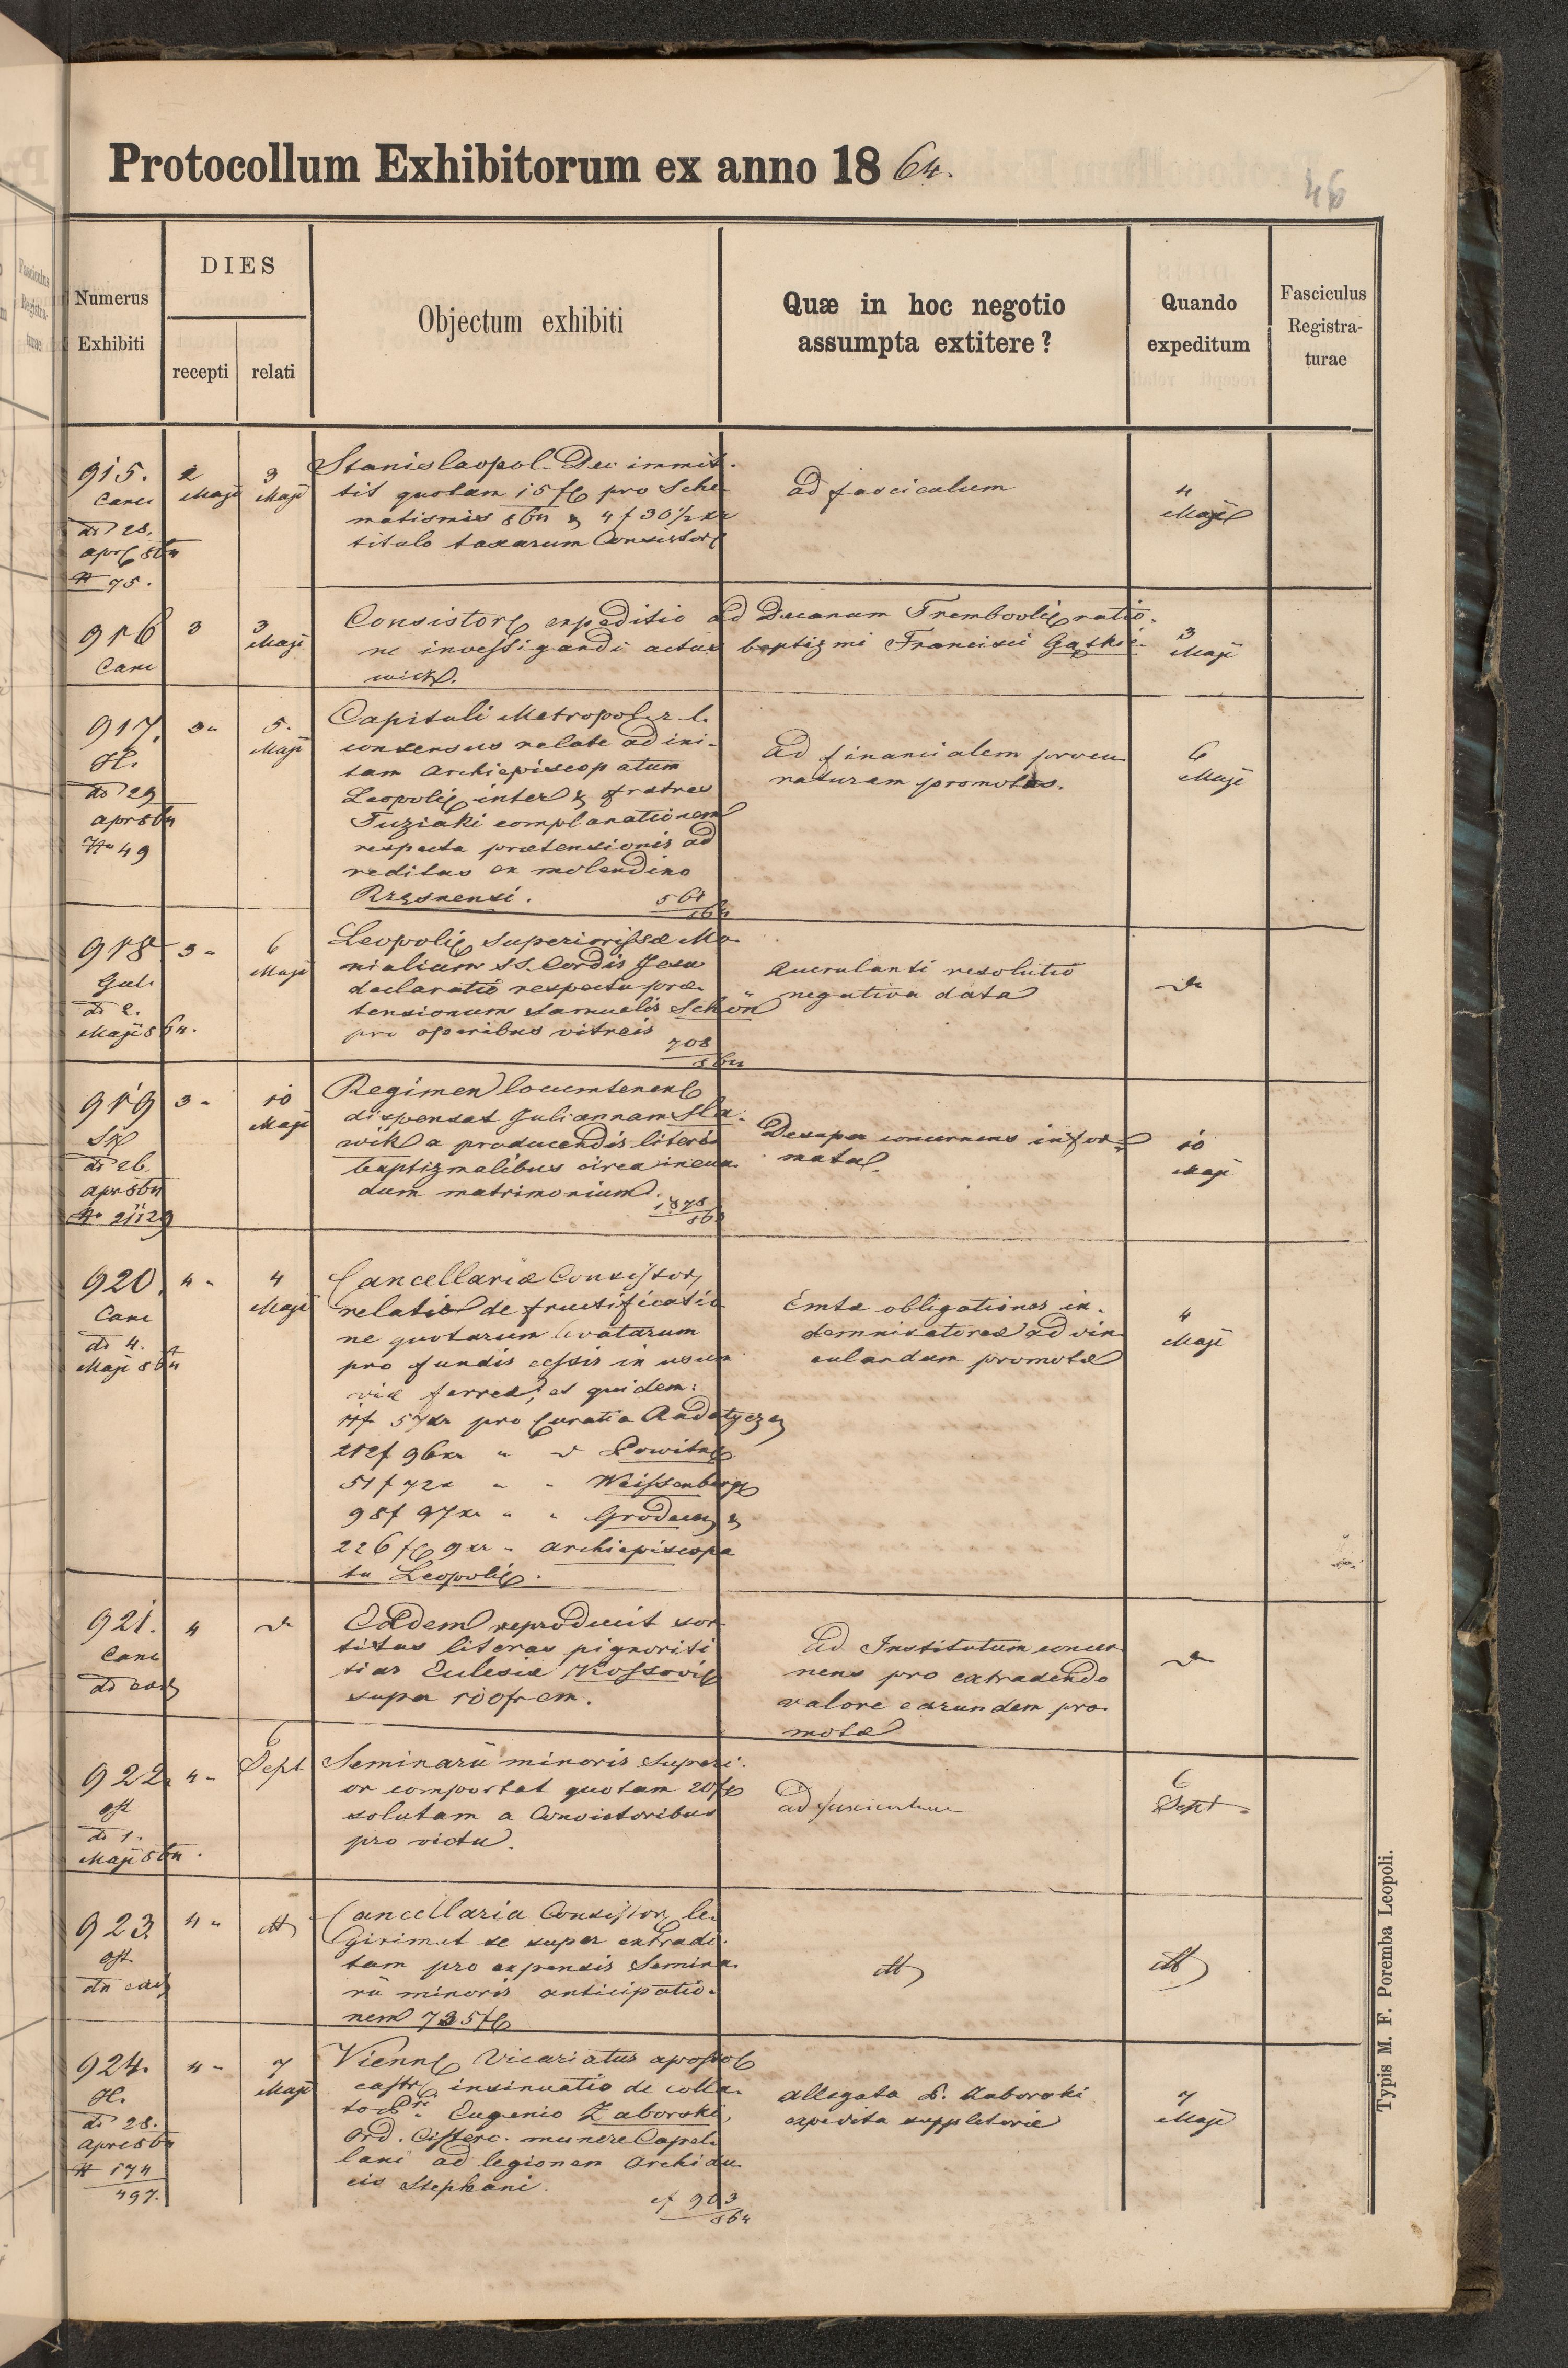 Protocollum Exhibitorum ex anno 1864.
46
Numerus Exhibiti
DIES
recepti
relati
Objectum exhibiti
Quæ in hoc negotio assumpta extitere?
Quando expeditum
Fasciculus Registra-turae
915. 2 Maji 3 Maji
Canc
dd 28.
apr 864
N 75.
Stanislaopol. Dec immit-
tit quotam 15 fl pro Sche-
matismis 864 & 4 f 30½ xr
titulo taxarum Consistor
ad fasciculum
4 Maji
916 3 3 Maji
Canc
Consistor expeditio ad Decanum Trembovlie ratio-
ne investigandi actus baptizmi Francisci Gaskie-
wicz.
3 Maji
917. 3 " 5. Maji
H.
dd 29
apr 864
No 49
Capituli Metropol. r. l.
consensus relate ad ini-
tam Archiepiscopatum
Leopoli inter & fratres
Tuziaki complanationem
respectu prætensionis ad
reditus ex molendino
Rzesnensi. 564
864
ad financialem procu-
raturam promotus.
6 Maji
918 3 " 6 Maji
Gul.
dd 2.
Maji 864.
Leopoli superiorissæ Mo-
nialium SS. Cordis Jesu
declaratio respectu præ-
tensionum Samuelis Schön
pro operibus vitreis
708
864
Querulanti resolutio
negativa data
919 3 " 10 Maji
dd 26
apr 864
No 21129
Regimen locumtenen
dispensat Juliannam Sla-
wik a producendis literis
baptizmalibus circa ineun-
dum matrimonium.
1878
863
Desuper concernens infor-
matus
10 Maji
920. 4 " 4 Maji
Canc
dd 4.
Maji 864
Cancellariæ Consistor
relatio de fructificatio-
ne quotarum levatarum
pro fundis cessis in usum
viæ ferreæ, et quidem:
17 f 57 xr pro Curatia Radatycze
212 f 96 xr " Powitno
51 f 72 x " " Weissenberg
98 f 97 xr " " Grodecy &
226 fl 9 xr " archiepiscopa
tu Leopoli.
Emtæ obligationes in-
demnisatoreæ ad vin-
culandum promotæ
4 Maji
921. 4
Canc
dd eod
Eadem reproducit sor-
titas literas pignoriti
tias Eclesiæ Kossovie
super 100 fr cm.
Ad Institutum concer
nens pro extradendo
valore earundem pro-
motæ
922. 4 " 6 Sept
dd 1.
Maji 864.
Seminarii minoris superi-
or comportat quotam 20 fl
solutam a Convictoribus
pro victu.
ad fasciculum
6 Sept
923. 4 "
dd eod
Cancellaria Consistor le-
gitimat se super extradi-
tam pro expensis Semina-
rii minoris anticipatio-
nem 735 fl
924. 4 " 7 Maji
H.
dd 28.
apr 864
N 174
497.
Vienn Vicariatus apostol
castr insinuatio de colla-
to Eugenio Zaborski
Ord. Cisterc. munere Capel-
lani ad legionem Archidu-
cis Stephani.
cf 903
864
allegata P. Zaborski
expedita suppletorie
7 Maji
Typis M. F. Poremba Leopoli.